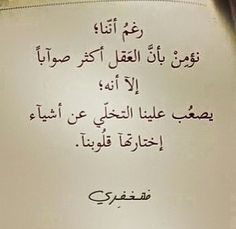 رغمُ أنّنا؛
نؤمِنْ بأنَّ العَقل أكثر صوآباً
إلآ أنه؛
يصعُب علينا التخلّي عن أشيآء
إختارتهآ قلُوبنآ.